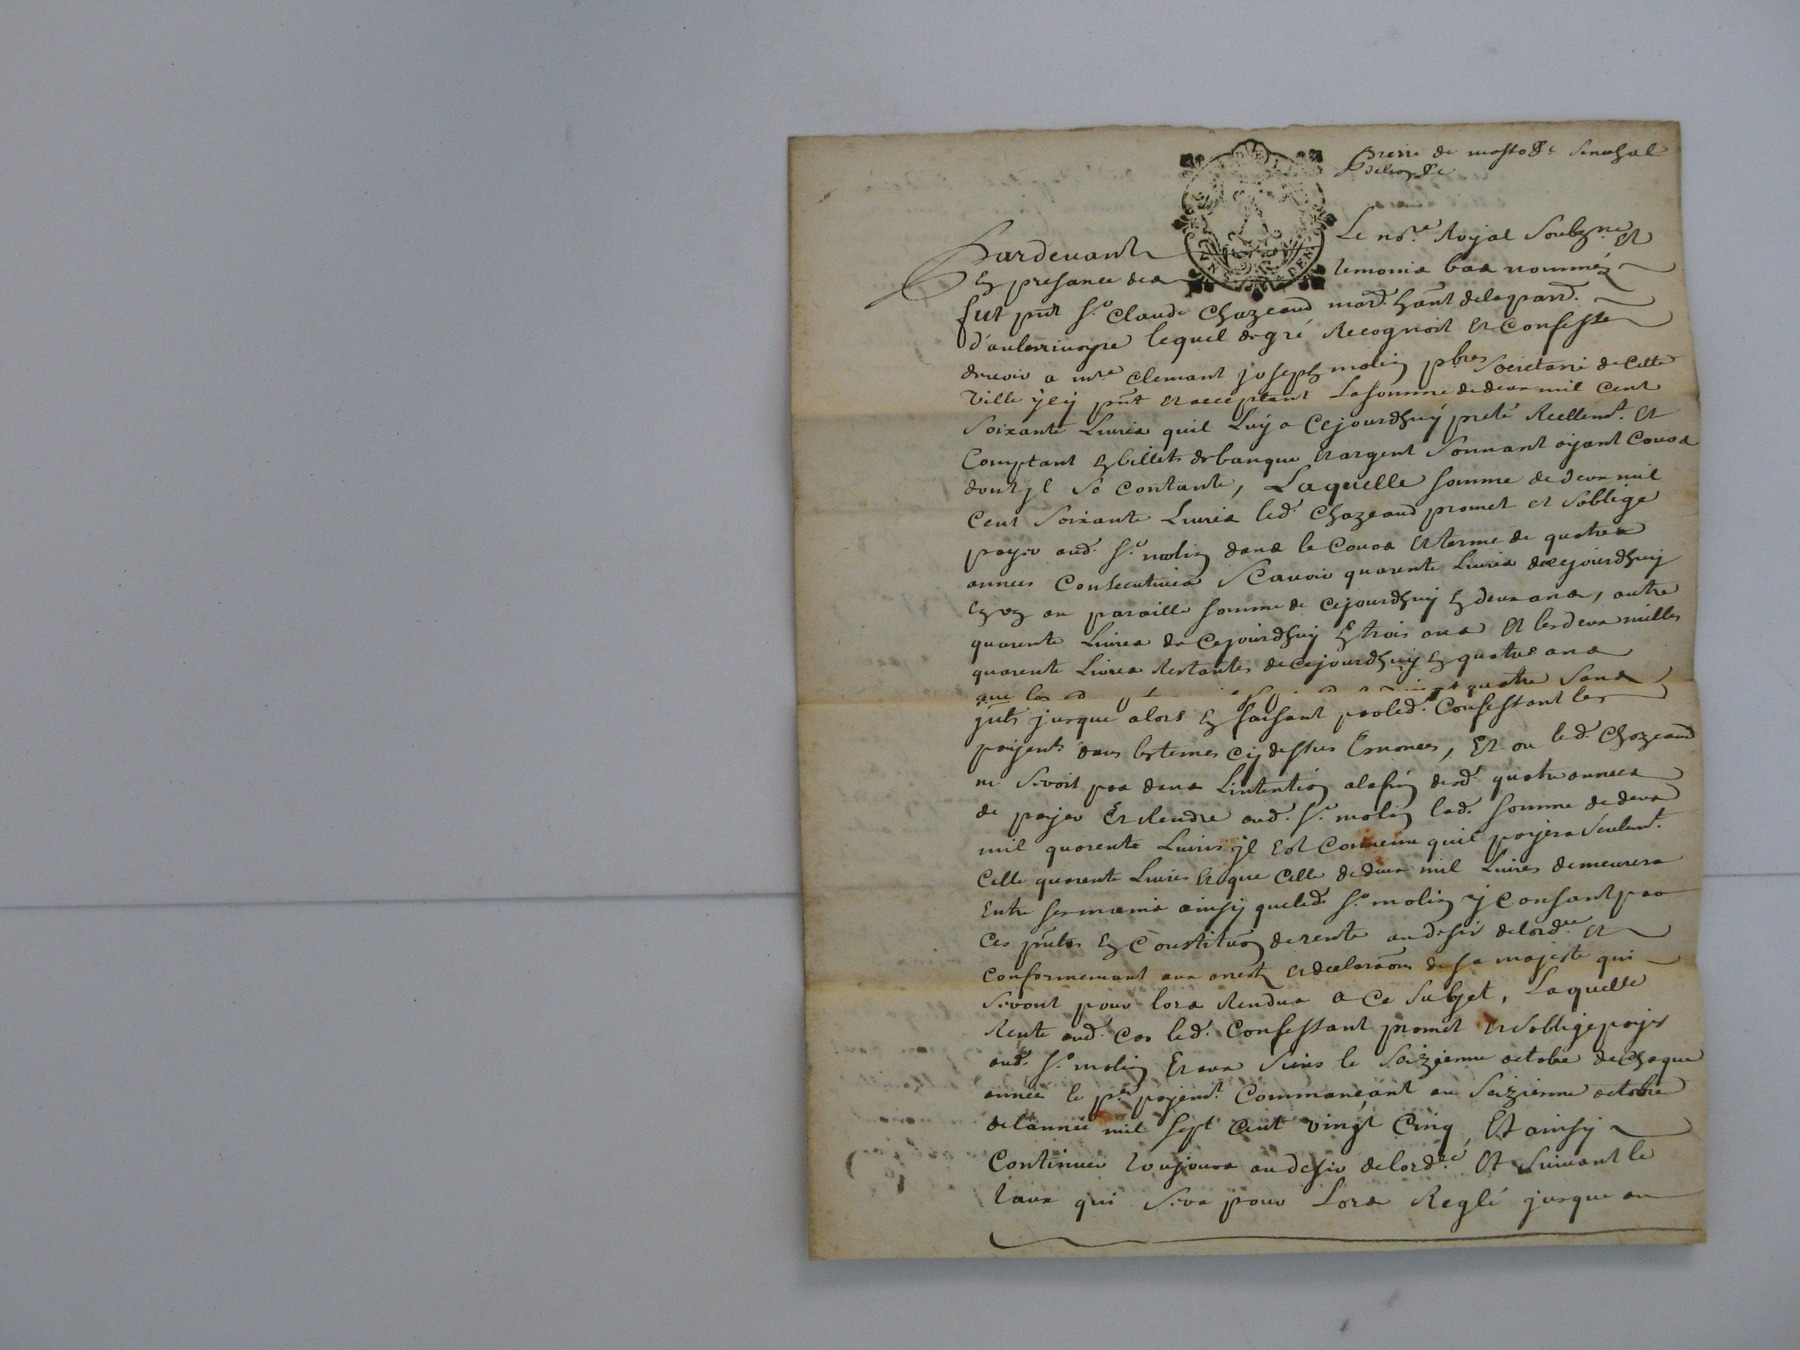 Pardevant Le no.re Royal Soubzne. et
En presance des temoins bas nommés
fut pnt Sr. Claude Chazeaud mard. hant de la parr.
lequel de gré Recognoit et Confesse
devoir a mre Clemant joseph molin pbre Societaire de Cette
Ville jcy pnt et acceptant La somme de deux mil Cent
Soixante Livres quil Luy a Cejourdhuy preté Reellemt. et
Comptant En billets de banque et argent Sonnant ayant Cours
dont jl Se Contante, Laquelle Somme de deux mil
Cent Soixante Livres led. Chazeaud promet et Soblige
payer aud. Sr. molin dans le Cours et terme de quatre
annees Consecutives Scavoir quarente Livres de Cejourdhuy
En un an paraille Somme de Cejourdhuy En deux ans, autre
quarente Livres de Cejourdhuy En trois ans et les deux milles
quarente Livres Restantes de Cejourdhuy En quatre ans
que lon quatre Sans
jnts jusque alors En faisant par led. Confessant les
payents dans les termes Cy dessus Enonces, Et ou led. Chazeaud
ne Seroit pas dans Lintention a la fin desd. quatre annees
de payer Et Rendre aud. Sr. molin lad. Somme de deux
mil quarente Livres jl Est Convenu quil payera Seulemt.
Celle quarente Livres Et que Celle de deux mil Livres demeurera
Entre Ses mains ainsy que led. Sr. molin y Consant par
Ces pntes En Constituon de rente au desir de lord.ce et
Conformemant aux arrests et declaraons de Sa majeste qui
Seront pour lors Rendus a Ce Subjet, Laquelle
Rente aud. Cas led. Confessant promet et Soblige payer
aud. Sr. molin Et aux Siens le Saizieme octobre de Chaque
année le pr. payemt. Commançant au Saizieme octobre
de lannée mil Sept Cent vingt Cinq, Et ainsy
Continuer toujours au desir de lord.ce Et Suivant le
taux qui Sera pour Lors Reglé jusque au